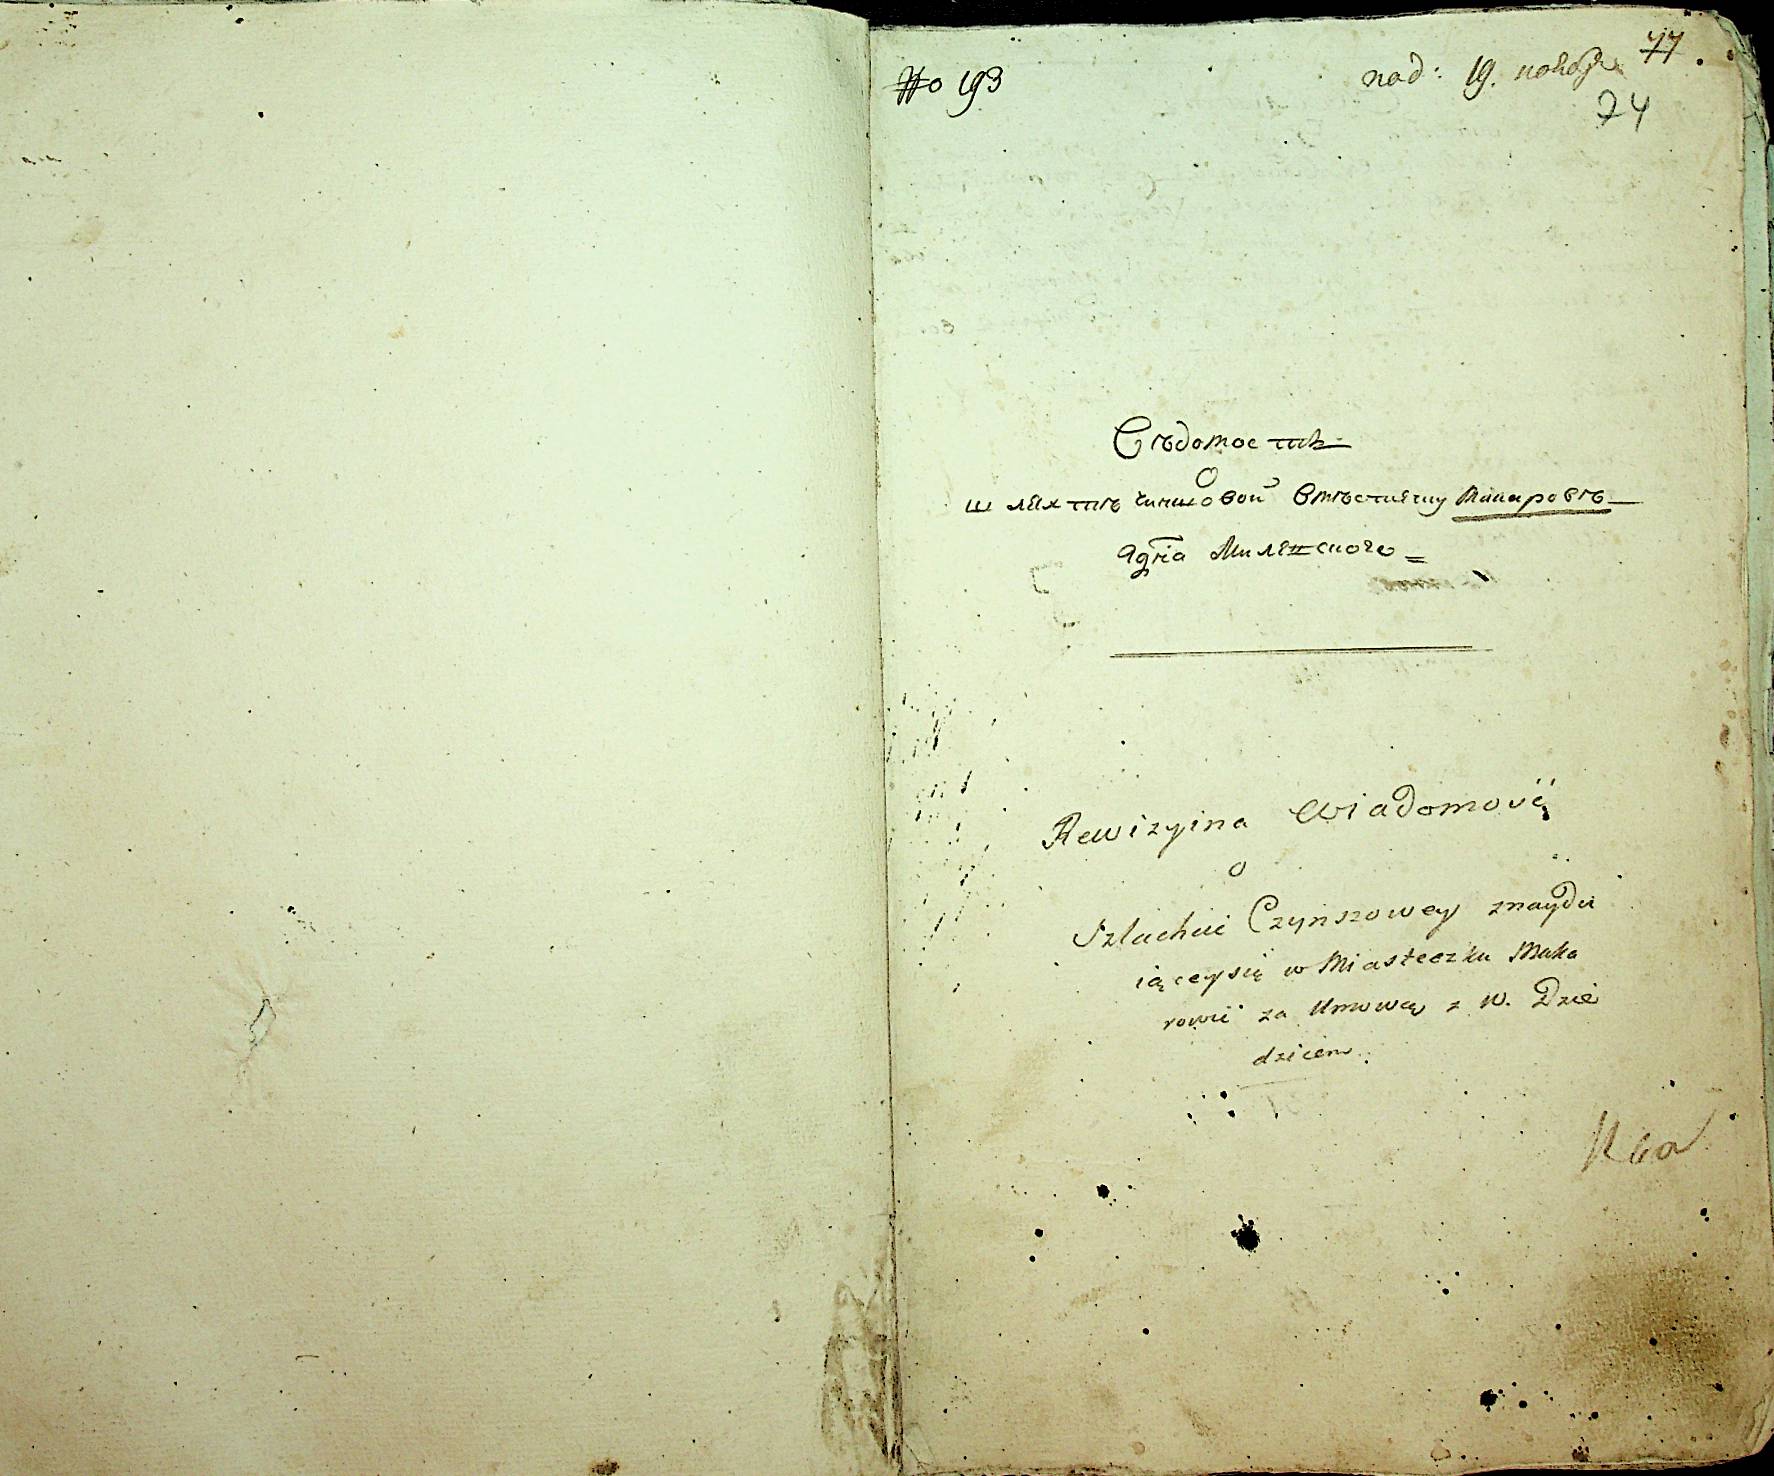 № 193
под: 19. ноября 77.
74
Вѣдомость
О
шляхтѣ чиншовой вмѣстечку Макаровѣ
Rewizyina Wiadomość
o
Szlachcie Czynszowey znaydu
iąceysię w Miasteczku Maka
rowie za Umową z W. Dzie
dzicem.